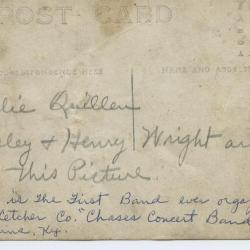 POST CARD
CORRESPONDENCE HERE
NAME AND ADDRESS
lie Quillen
ley & Henry Wright ar
This Picture.
is The First Band ever orga
Letcher Co. "Chases Concert Band
Ky.